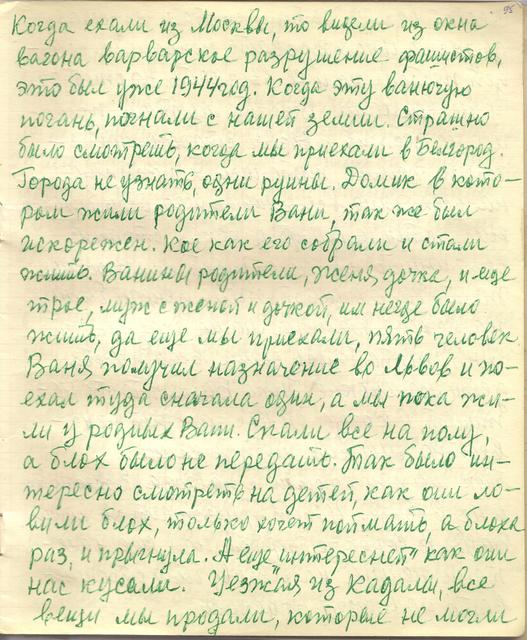 95
Когда ехали из Москвы, то видели из окна
вагона варварское разрушение фашистов,
это был уже 1944 год. Когда эту ванючую
погань, погнали с нашей земли. Страшно
было смотреть, когда мы приехали в Белгород.
Города не узнать, одни руины. Домик в кото-
ром жили родители Вани, так же был
искорежен. Кое как его собрали и стали
жить. Ванины родители, Женя дочка, и еще
трое, муж с женой и дочкой, им негде было
жить, да еще мы приехали, пять человек.
Ваня получил назначение во Львов и по-
ехал туда сначала один, а мы пока жи-
ли у родных Вани. Спали все на полу,
а блох было не передать. Так было ин-
тересно смотреть на детей, как они ло-
вили блох, только хочет поймать, а блоха
раз, и прыгнула. А еще "интересней" как они
нас кусали. Уезжая из Кадалы, все
вещи мы продали, которые не могли